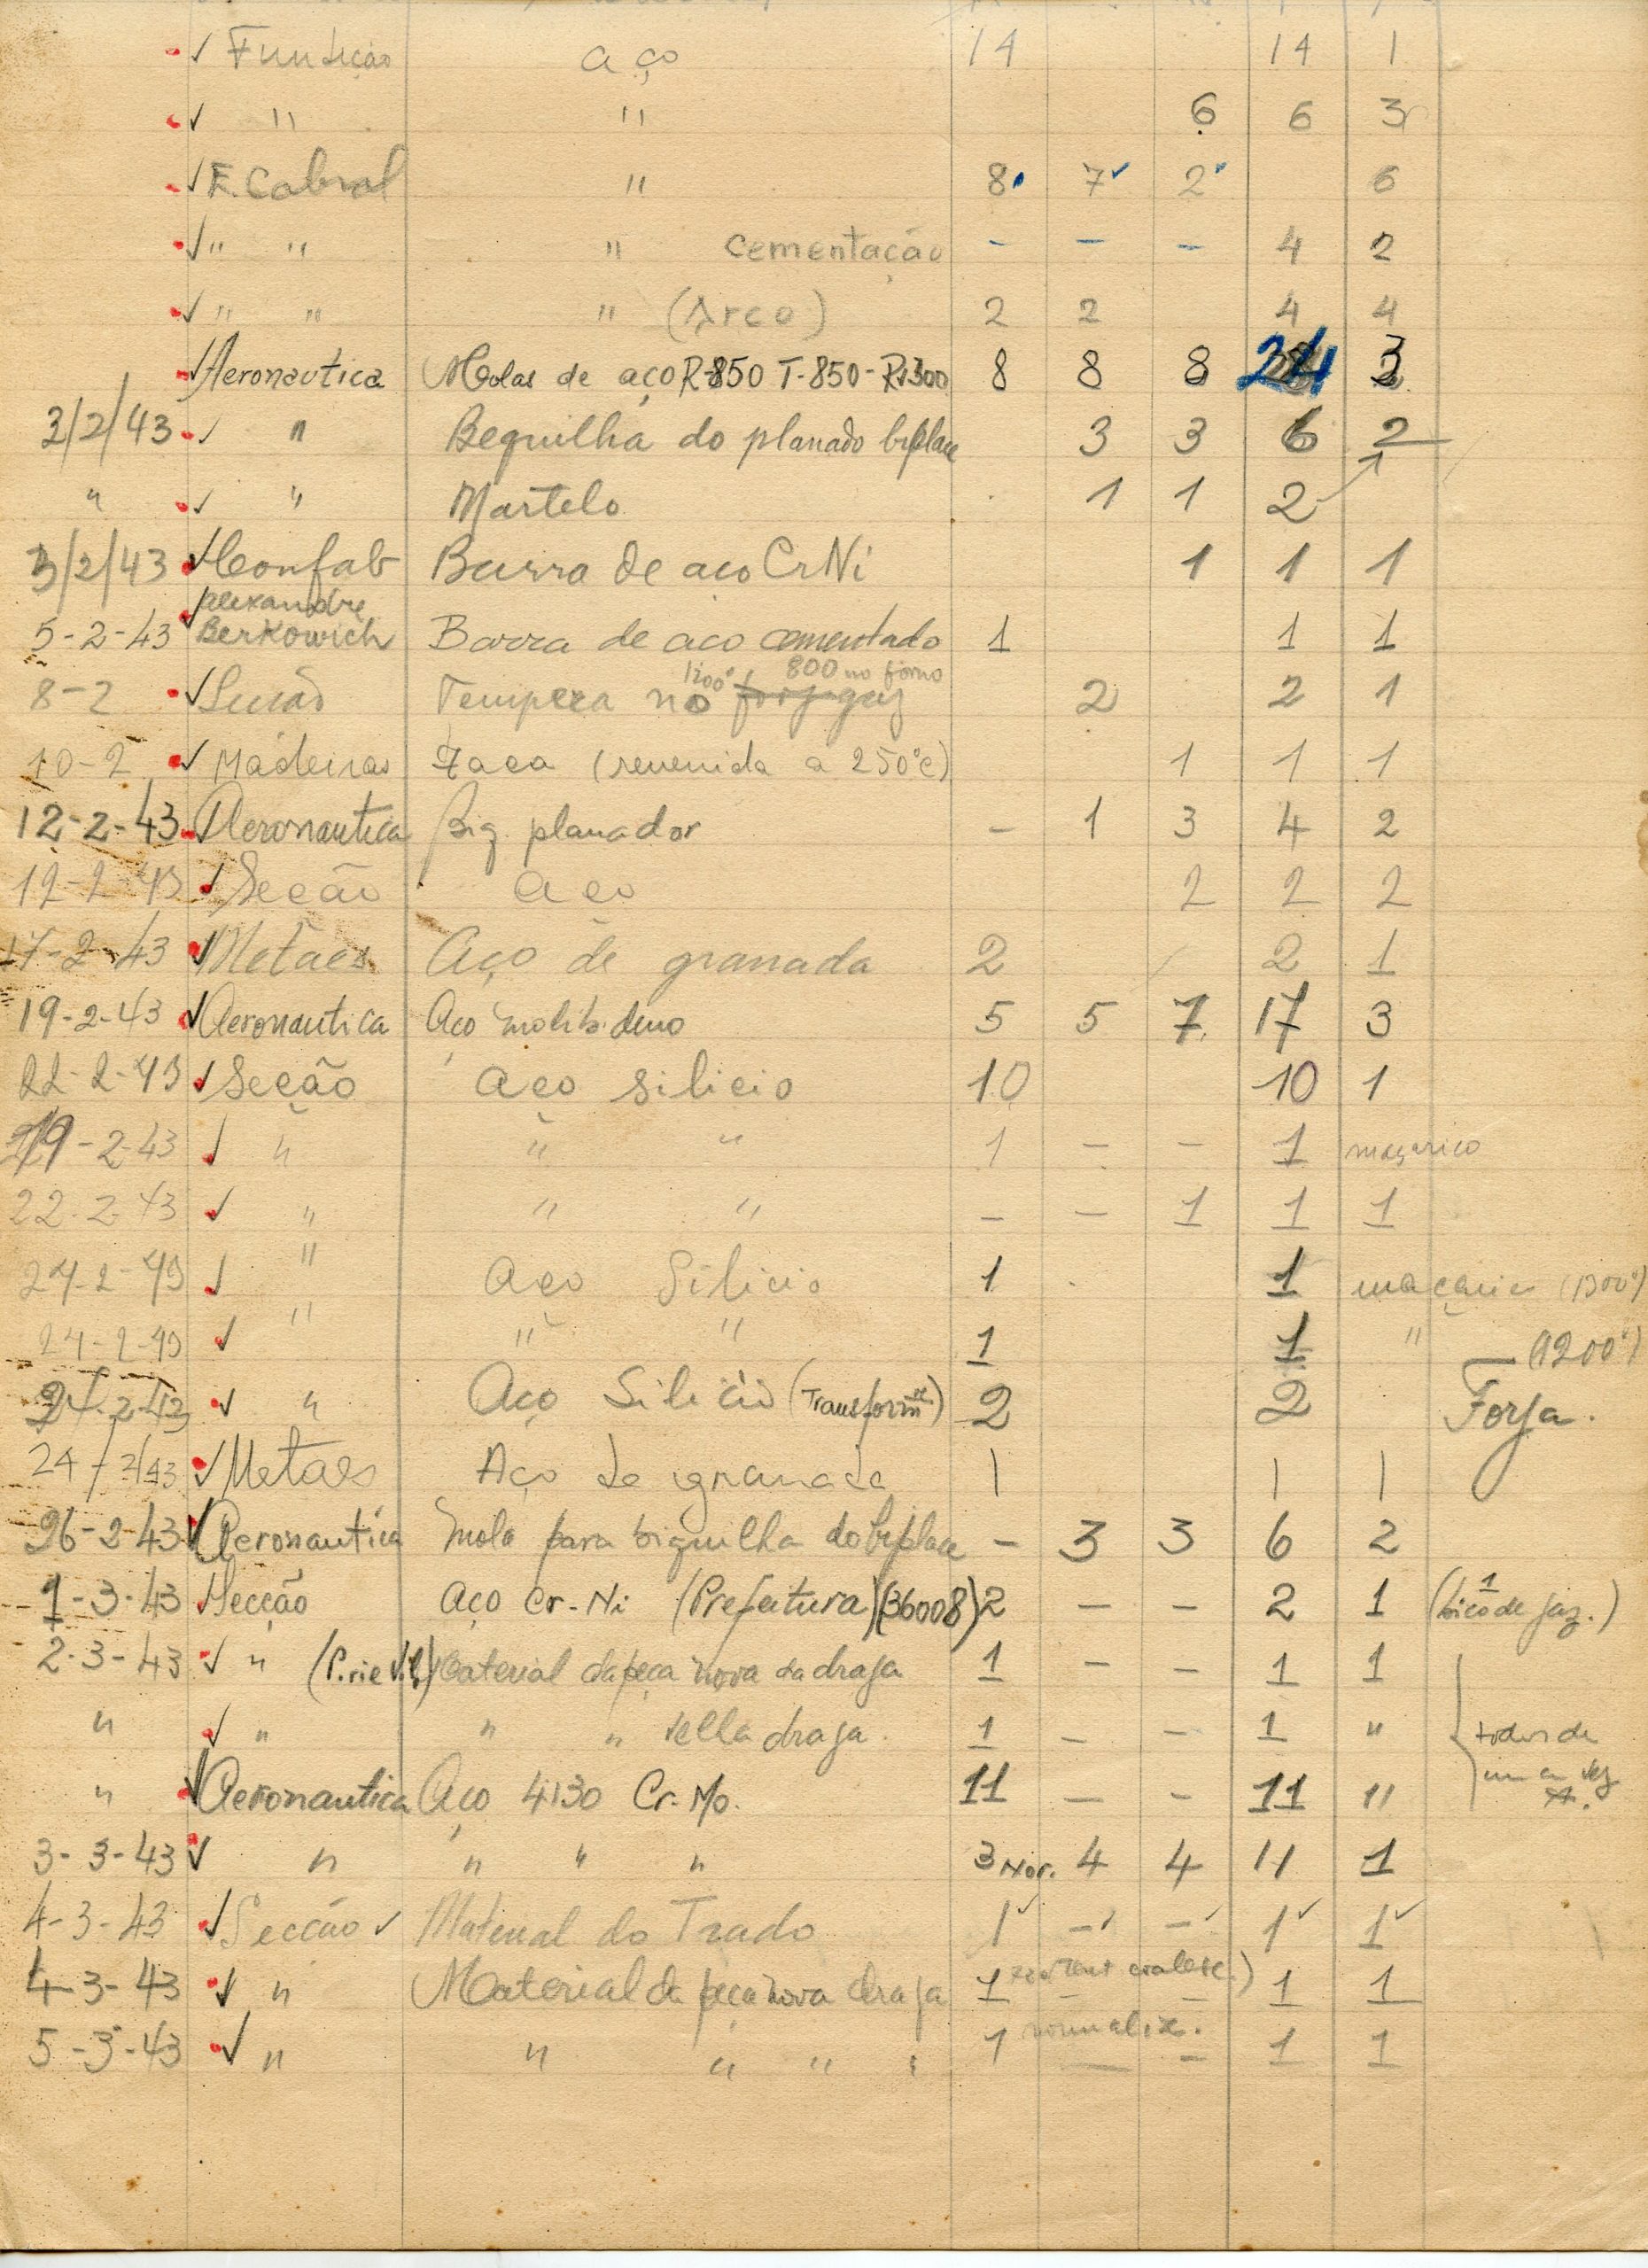 ✓ Fundição aço 14 14 1
✓ " " 6 6 3
✓ E. Cabral " 8 7 2 6
✓ " " " cementação - - - 4 2
✓ " " " (Arco) 2 2 4 4
✓ Aeronautica Molas de aço R-850 T-850 - Rv300 8 8 8 24 3
3/2/43 ✓ " Bequilha do planado biplace 3 3 6 2
" ✓ " Martelo 1 1 2
3/2/43 ✓ Confab Barra de aco CrNi 1 1 1
Alexandre
5-2-43 ✓ Berkowich Barra de aco cementado 1 1 1
1200° 800 no forno
8-2 ✓ Secão Tempera no 2 2 1
10-2 ✓ Madeiras Faca (revenida a 250°c) 1 1 1
12-2-43 ✓ Aeronautica Biq. planador - 1 3 4 2
12-2-43 ✓ Secão aco 2 2 2
17-2-43 ✓ Metaes Aço de granada 2 2 1
19-2-43 ✓ Aeronautica Aço molibdeno 5 5 7 17 3
22-2-43 ✓ Secão aço silicio 10 10 1
19-2-43 ✓ " " " 1 - - 1 maçarico
22-2-43 ✓ " " " - - 1 1 1
24-2-43 ✓ " Aço Silicio 1 1 maçarico (1300°)
24-2-43 ✓ " " " 1 1 " (1200°)
24-2-43 ✓ " Aço Silicio (Transform) 2 2 Forja.
24-2/43 ✓ Metaes Aço de granada 1 1 1
26-2-43 ✓ Aeronautica mola para biquilha do biplace - 3 3 6 2
1-3-43 Secção aço Cr-Ni (Prefeitura) (36008) 2 - - 2 1 (1 bico de gaz.)
2-3-43 ✓ " Material da peça nova da draga 1 - - 1 1
" ✓ " " " velha draga. 1 - - 1 " todos de
" ✓ Aeronautica Aço 4130 Cr-Mo. 11 - - 11 " uma vez
3-3-43 ✓ " " " " 3 Nor. 4 4 11 1
4-3-43 ✓ Secção ✓ Material do Trado 1 ✓ - - 1 ✓ 1 ✓
4-3-43 ✓ " Material da peça nova draga 1 1 1
5-3-43 ✓ " " " " " 1 normaliz. - - 1 1